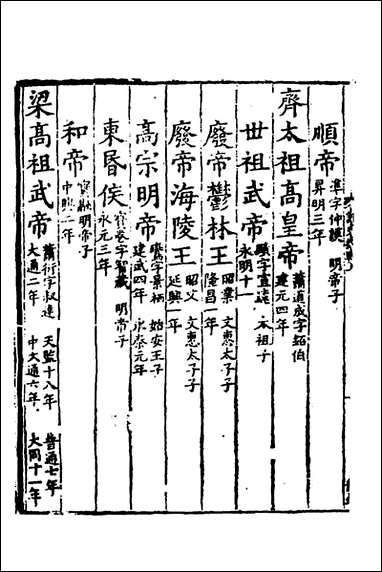 順帝 準字仲謨 明帝子 昇明三年
齊太祖高皇帝 蕭道成字紹伯 建元四年
世祖武帝 賾字宣遠 太祖子 永明十一
廢帝鬱林王 昭業 文惠太子子 隆昌一年
廢帝海陵王 昭文 文惠太子子 延興一年
高宗明帝 鸞字景栖 始安王子 建武四年 永泰元年
東昏侯 寳卷字智藏 明帝子 永元三年
和帝 寳融明帝子 中興二年
梁高祖武帝 蕭衍字叔達 天監十八年 普通七年 大通二年 中大通六年 大同十一年